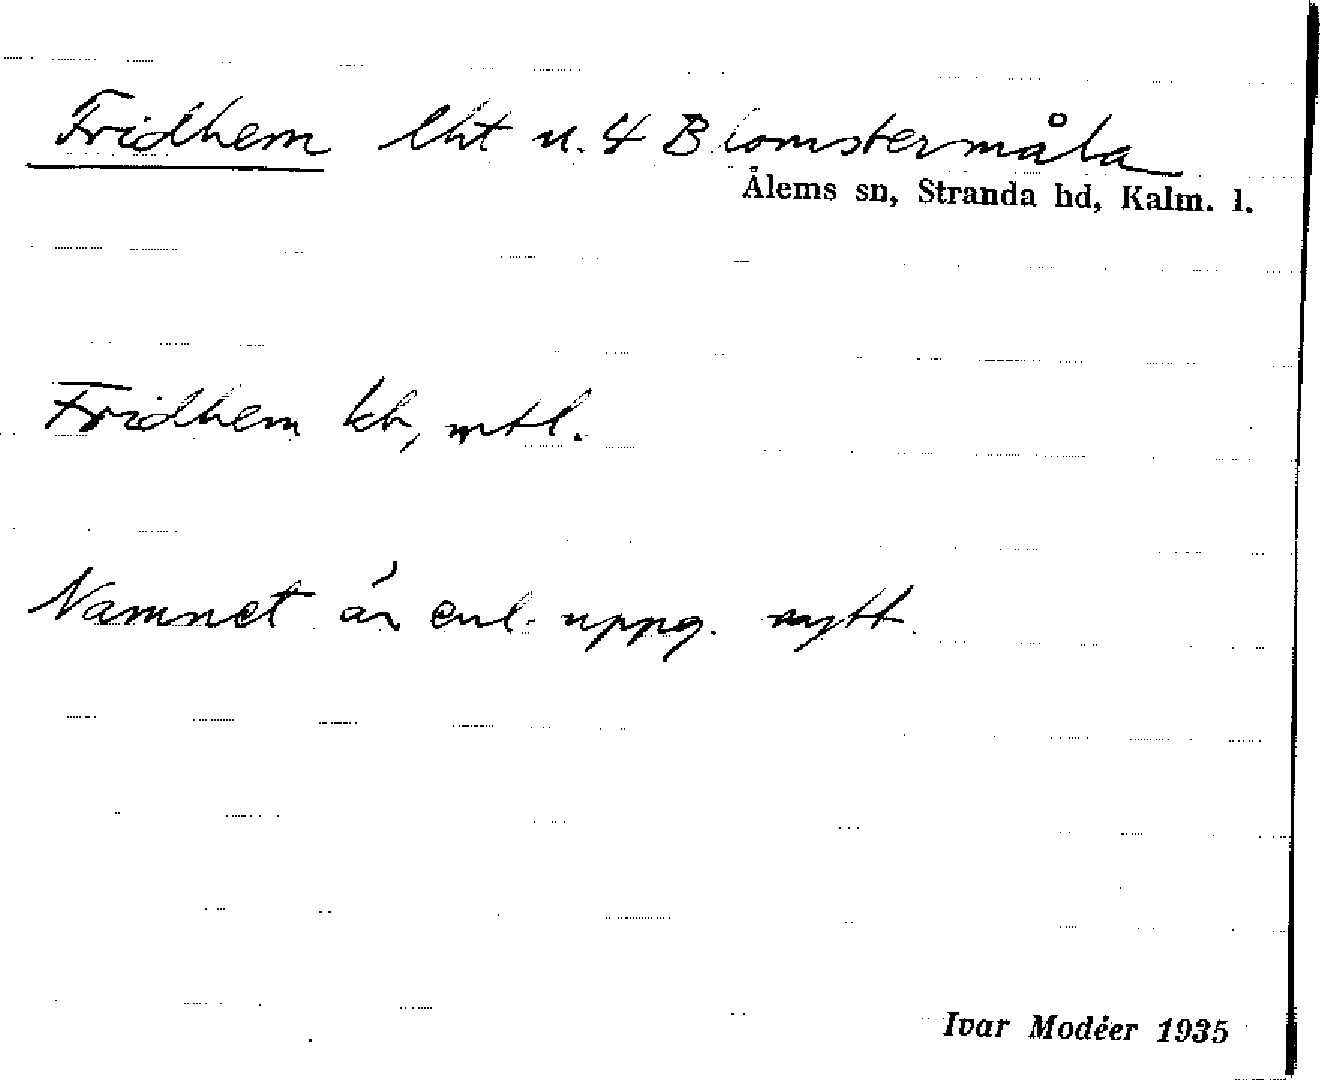 Fridhem lht u. 4 Blomstermåla
Ålems sn, Stranda hd, Kalm. l.
Fridhem kb, mtl.
Namnet är enl. uppg. nytt.
Ivar Modéer 1935